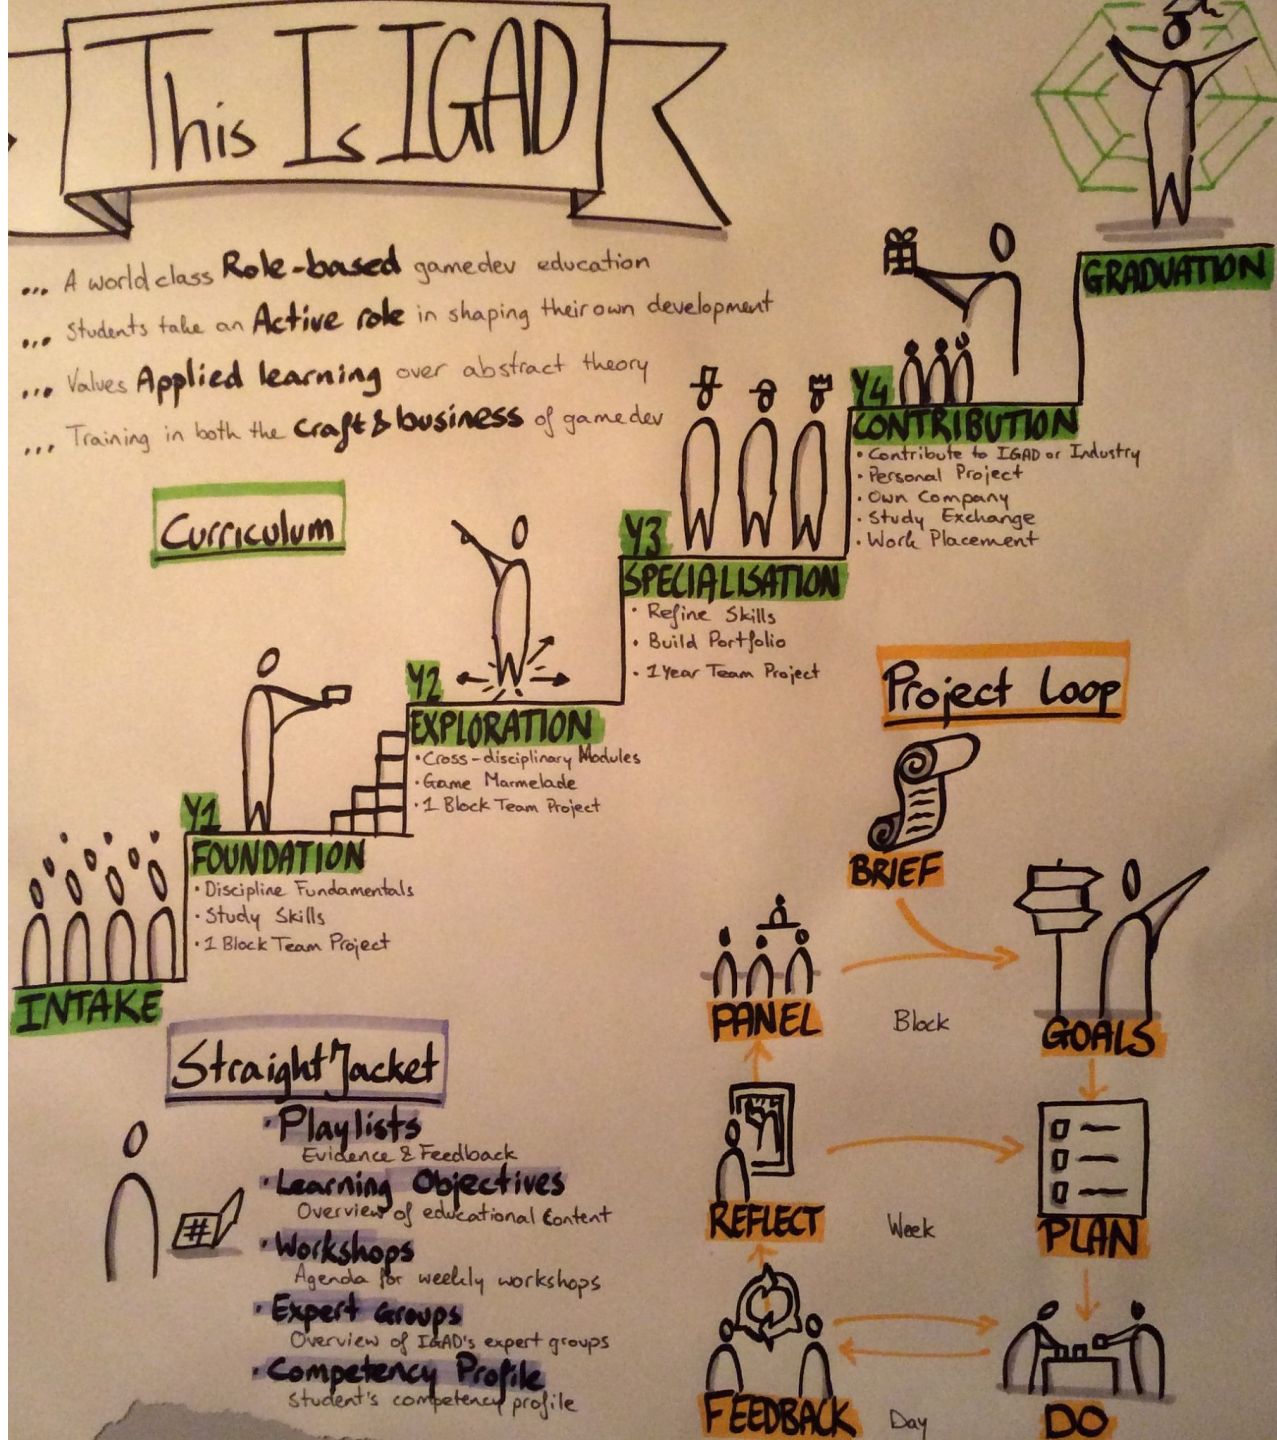 This Is IGAD
... A world class Role-based gamedev education
... Students take an Active role in shaping their own development
... Values Applied learning over abstract theory
... Training in both the craft & business of gamedev
Curriculum
INTAKE
Y1
FOUNDATION
• Discipline Fundamentals
• Study Skills
• 1 Block Team Project
Y2
EXPLORATION
• Cross-disciplinary Modules
• Game Marmelade
• 1 Block Team Project
Y3
SPECIALISATION
• Refine Skills
• Build Portfolio
• 1 Year Team Project
Y4
CONTRIBUTION
• Contribute to IGAD or Industry
• Personal Project
• Own Company
• Study Exchange
• Work Placement
GRADUATION
StraightJacket
• Playlists
Evidence & Feedback
• Learning Objectives
Overview of educational Content
• Workshops
Agenda for weekly workshops
• Expert Groups
Overview of IGAD's expert groups
• Competency Profile
Student's competency profile
#
Project Loop
BRIEF
PANEL
Block
GOALS
REFLECT
Week
PLAN
FEEDBACK
Day
DO